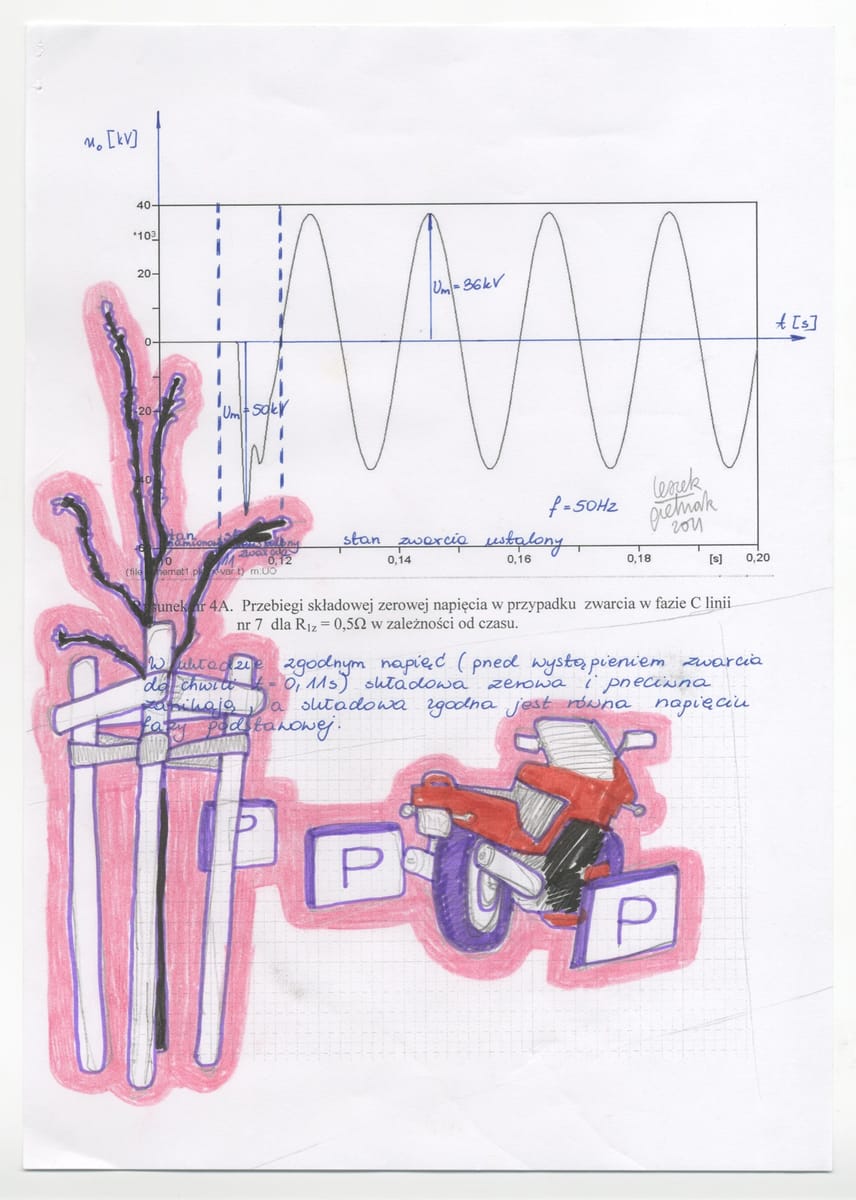 u₀ [kV]
40
*10³
20
0
t [s]
Um = 36kV
-20
Um = 50kV
40
f = 50Hz
leszek
pietniak
2011
stan
stan zwarcia ustalony
zwarcia
0,12
0,14
0,16
0,18
[s]
0,20
(file
var.t) m:U0
nr 4A. Przebiegi składowej zerowej napięcia w przypadku zwarcia w fazie C linii
nr 7 dla R1z = 0,5Ω w zależności od czasu.
W układzie zgodnym napięć (pned wystąpieniem zwarcia
do chwili t = 0,11s) składowa zerowa i pneciwna
zanikają, a składowa zgodna jest równa napięciu
fazy podstawowej.
P
P
P